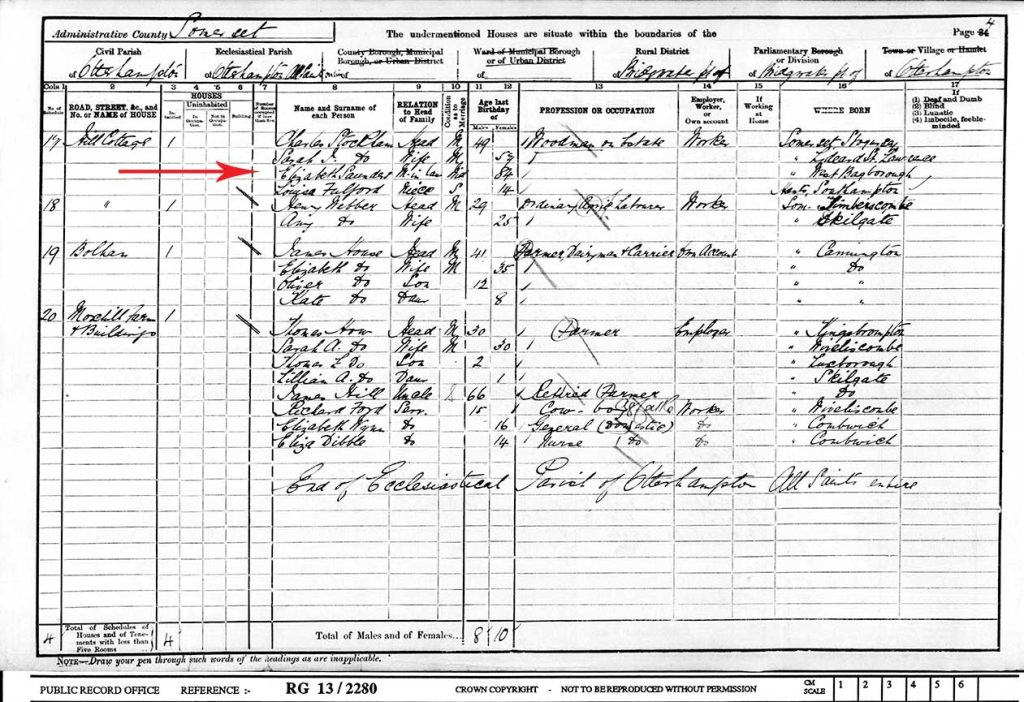 Administrative County Somerset
The undermentioned Houses are situate within the boundaries of the
Page 4
Civil Parish
of Otterhampton
Ecclesiastical Parish
of Otterhampton All Saints
County Borough, Municipal Borough, or Urban District
of
Ward of Municipal Borough or of Urban District
of
Rural District
of Bridgwater pt of
Parliamentary Borough or Division
of Bridgwater pt of
Town or Village or Hamlet
of Otterhampton
Cols 1 2 3 4 5 6 7 8 9 10 11 12 13 14 15 16 17
No. of Schedule
ROAD, STREET, &c., and No. or NAME of HOUSE
HOUSES
Inhabited
Uninhabited
In Occupation.
Not in Occupation.
Building.
Name and Surname of each Person
RELATION to Head of Family
Condition as to Marriage
Age last Birthday of
Males Females
PROFESSION OR OCCUPATION
Employer, Worker, or Own account
If Working at Home
WHERE BORN
If
(1) Deaf and Dumb
(2) Blind
(3) Lunatic
(4) Imbecile, feeble-minded
17 Hill Cottage 1 Charles Stockham Head M 49 Woodman on Estate Worker Somerset Stogursey
Sarah J. Do Wife M 57 " Lydeard St. Lawrence
Elizabeth Saunders M-in-law Wid 84 " West Bagborough
Louisa Fulford Niece S 14 Hants, Southampton
18 " 1 Henry Webber Head M 29 Ordinary Agric Labourer Worker Som. Timberscombe
Amy do Wife 25 " Skilgate
19 Bolham 1 James House Head M 41 Farmer, Dairyman & Carrier Own Account " Cannington
Elizabeth Do Wife M 35 " Do
Oliver Do Son 12 " "
Kate Do Daur 8 " "
20 Moxhill Farm 1
& Buildings Thomas How Head M 30 Farmer Employer " Kingsbrompton
Sarah A. Do Wife M 30 " Wiveliscombe
Thomas L Do Son 2 " Luxborough
Lillian A. Do Daur 1 " Skilgate
James Hill Uncle S 66 Retired Farmer " Do
Richard Ford Serv. 15 Cow-boy Worker " Wiveliscombe
Elizabeth Do 16 General (Domestic) Do " Combwich
Eliza Dibble Do 14 Nurse Do Do " Combwich
End of Ecclesiastical Parish of Otterhampton All Saints entire
4 Total of Schedules of Houses and of Tenements with less than Five Rooms 4 Total of Males and of Females... 8 10
NOTE—Draw your pen through such words of the headings as are inapplicable.
PUBLIC RECORD OFFICE REFERENCE :- RG 13/2280 CROWN COPYRIGHT - NOT TO BE REPRODUCED WITHOUT PERMISSION CM SCALE 1 2 3 4 5 6